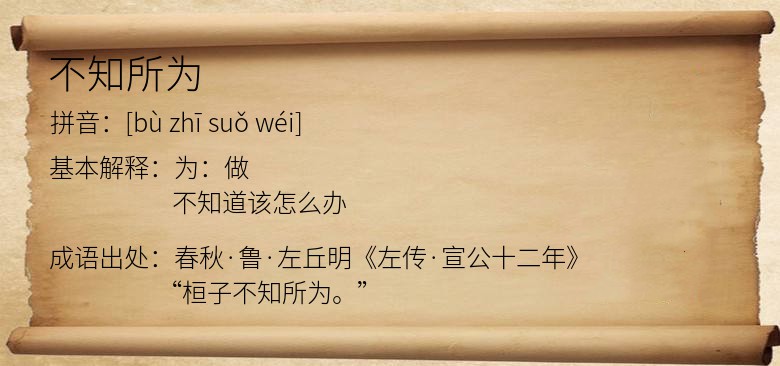 不知所为
拼音：[bù zhī suǒ wéi]
基本解释：为：做
不知道该怎么办
成语出处：春秋·鲁·左丘明《左传·宣公十二年》
“桓子不知所为。”